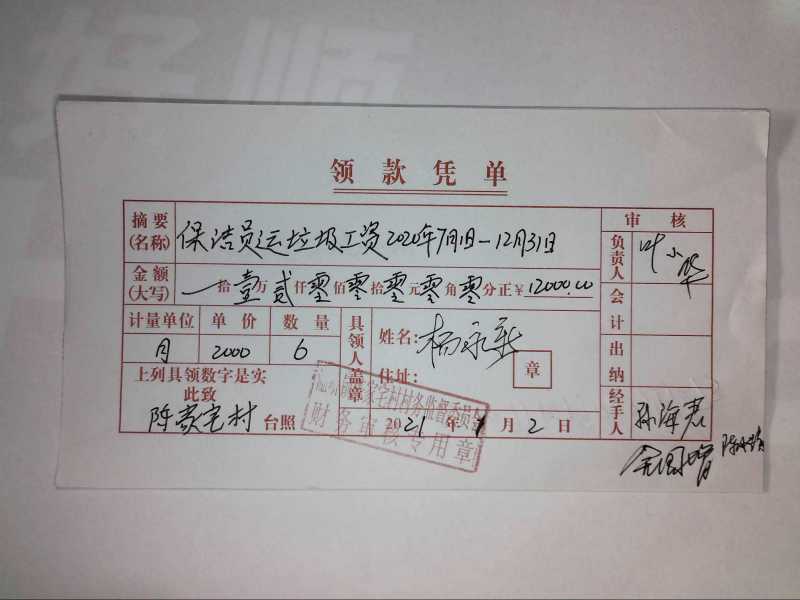 领款凭单
摘要(名称) 保洁员运垃圾工资2020年7月1日—12月31日
审核
负责人 叶小华
金额(大写) 一拾壹万贰仟零佰零拾零元零角零分正¥12000.00
会计
计量单位 单价 数量
月 2000 6
具领人盖章
姓名:杨永新
住址:
章
出纳
上列具领数字是实
此致
村 台照
2021年1月2日
经手人 孙海君
村务监督委员
财务审核专用章